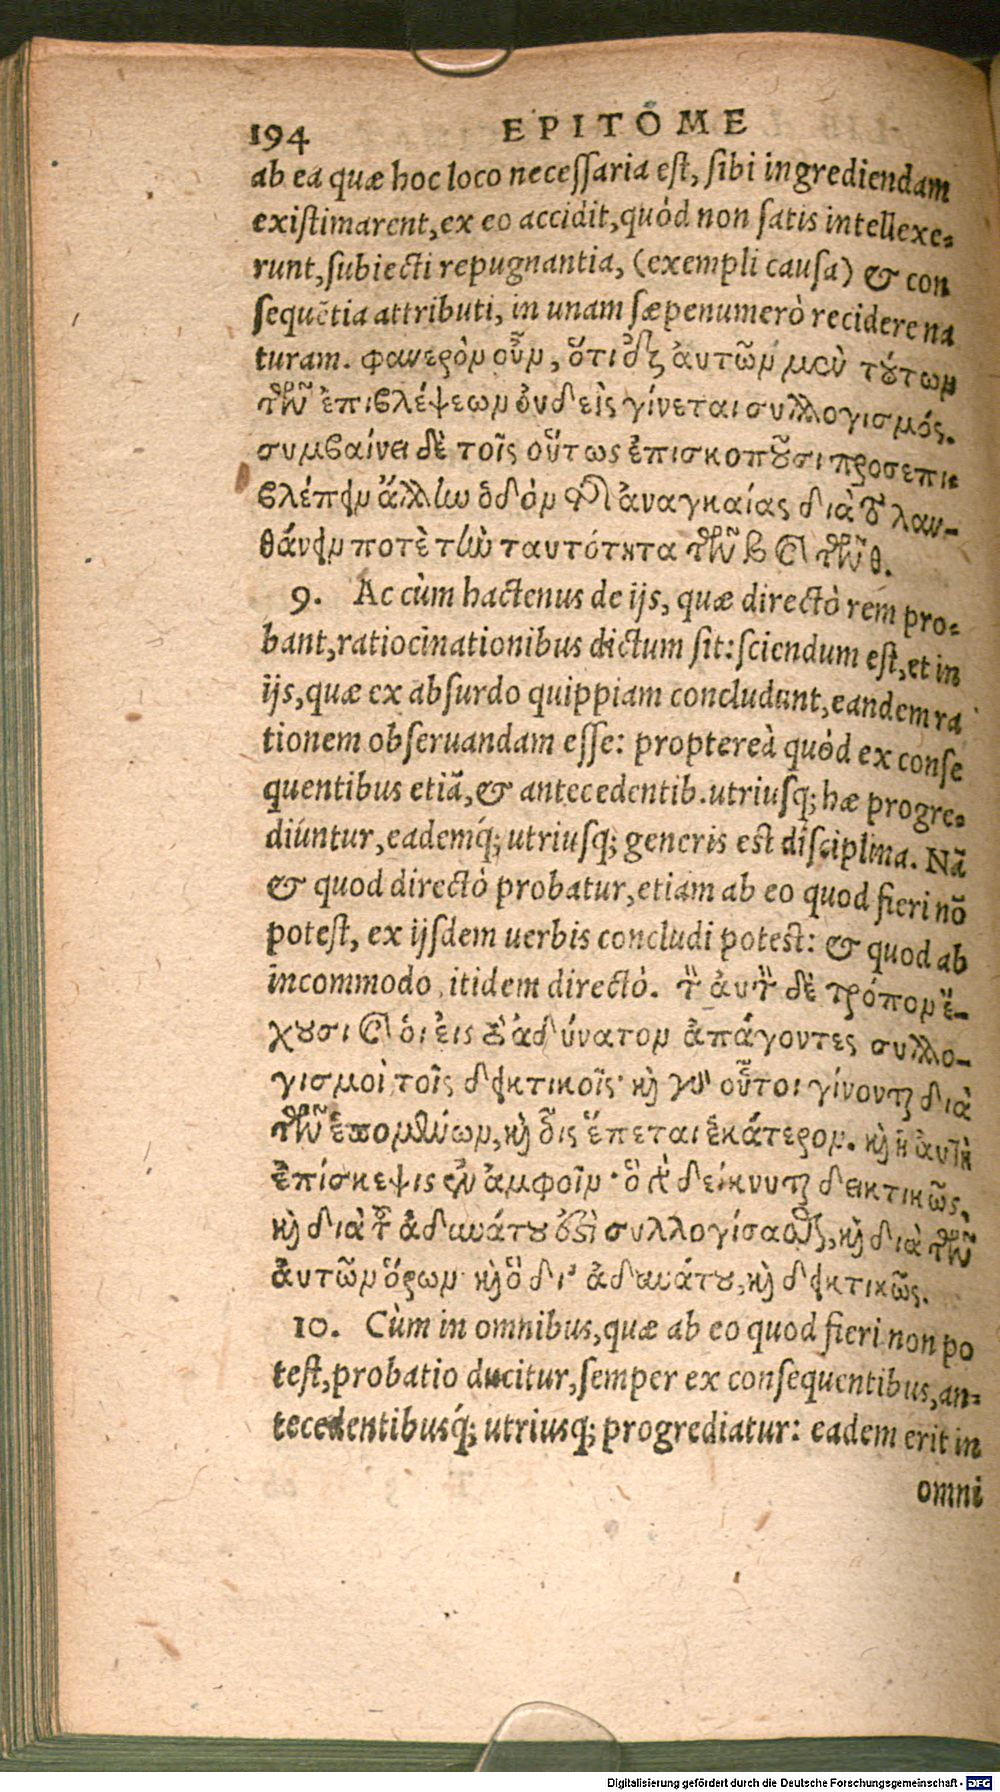 194 EPITOME
ab ea quæ hoc loco necessaria est, sibi ingrediendam
existimarent, ex eo accidit, quòd non satis intellexe-
runt, subiecti repugnantia, (exempli causa) & con
sequẽtia attributi, in unam sæpenumerò recidere na
turam. φανερὸν οὖν, ὅτι ἐξ ἀυτῶν μὲν τούτων
τῶν ἐπιβλέψεων ὀυδεὶς γίνεται συλλογισμός.
συμβαίνει δὲ τοῖς οὕτως ἐπισκοποῦσι προσεπι-
βλέπειν ἄλλην ὁδὸν τῆς ἀναγκαίας διὰ τὸ λαν-
θάνειν ποτὲ τὴν ταυτότητα τῶν β καὶ τῶν θ.
9. Ac cùm hactenus de ijs, quæ directò rem pro-
bant, ratiocinationibus dictum sit: sciendum est, et in
ijs, quæ ex absurdo quippiam concludunt, eandem ra
tionem obseruandam esse: propterea quòd ex conse
quentibus etiã, & antecedentib. utriusq; hæ progre-
diuntur, eademq́; utriusq; generis est disciplina. Nã
& quod directò probatur, etiam ab eo quod fieri nõ
potest, ex ijsdem uerbis concludi potest: & quod ab
incommodo, itidem directò. τὸν ἀυτὸν δὲ τρόπον ἔ-
χουσι καὶ ὁι εἰς τὸ ἀδύνατον ἀπάγοντες συλλο-
γισμοὶ τοῖς δεικτικοῖς· καὶ γὰρ οὗτοι γίνονται διὰ
τῶν ἑπομένων, καὶ οἷς ἕπεται ἑκάτερον. καὶ ἡ ἀυτὴ
ἐπίσκεψις ἐν ἀμφοῖν· ὃ γὰρ δείκνυται δεικτικῶς,
καὶ διὰ τοῦ ἀδυνάτου ἐστὶ συλλογίσασθαι, καὶ διὰ τῶν
ἀυτῶν ὅρων· καὶ ὃ δι' ἀδυνάτου, καὶ δεικτικῶς.
10. Cùm in omnibus, quæ ab eo quod fieri non po
test, probatio ducitur, semper ex consequentibus, an-
tecedentibusq́; utriusq; progrediatur: eadem erit in
omni
Digitalisierung gefördert durch die Deutsche Forschungsgemeinschaft - DFG